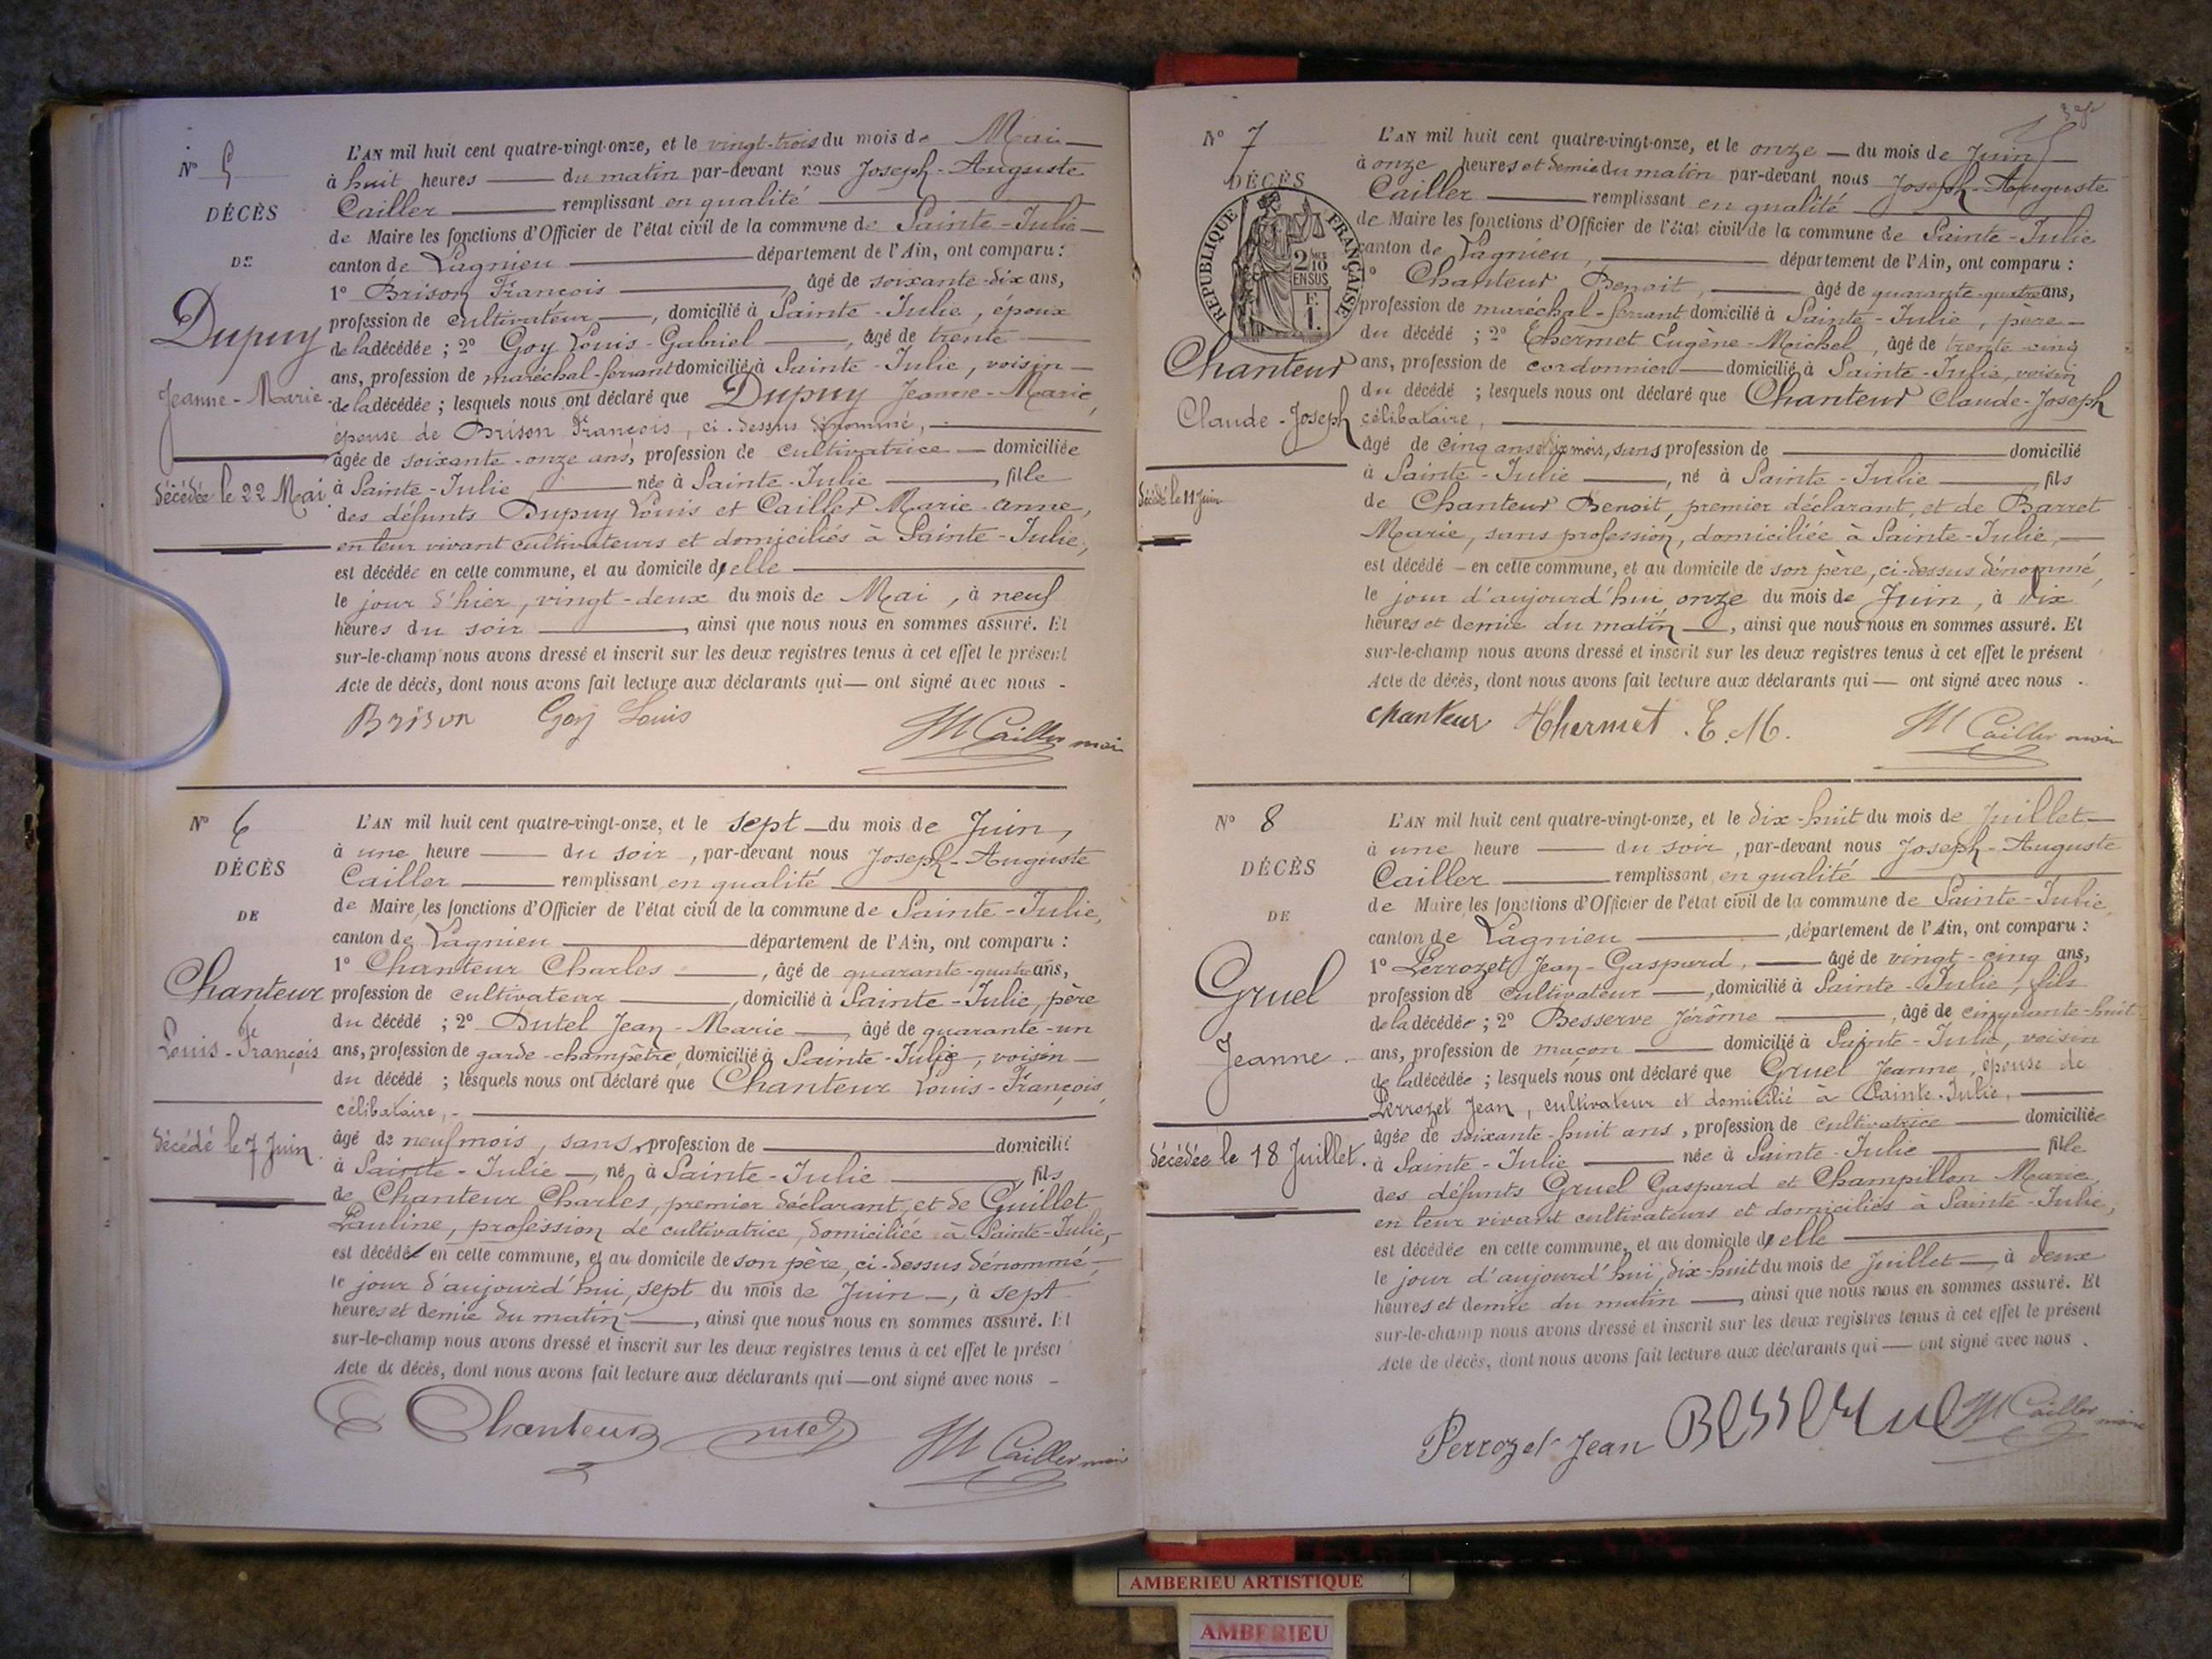 N° 5
DÉCÈS
DE
Dupuy
Jeanne-Marie
décédée le 22 Mai.
L'AN mil huit cent quatre-vingt-onze, et le vingt-trois du mois de Mai
à huit heures du matin par-devant nous Joseph-Auguste
Cailler remplissant en qualité
de Maire les fonctions d'Officier de l'état civil de la commune de Sainte-Julie
canton de Lagnieu département de l'Ain, ont comparu :
1° Brison François, âgé de soixante-dix ans,
profession de cultivateur, domicilié à Sainte-Julie, époux
de la décédée ; 2° Goy Louis-Gabriel, âgé de trente
ans, profession de maréchal-ferrant domicilié à Sainte-Julie, voisin
de la décédée ; lesquels nous ont déclaré que Dupuy Jeanne-Marie,
épouse de Brison François, ci-dessus dénommé,
âgée de soixante-onze ans, profession de cultivatrice domiciliée
à Sainte-Julie, née à Sainte-Julie, fille
des défunts Dupuy Louis et Cailler Marie-Anne,
en leur vivant cultivateurs et domiciliés à Sainte-Julie,
est décédée en cette commune, et au domicile d'elle
le jour d'hier, vingt-deux du mois de Mai, à neuf
heures du soir, ainsi que nous nous en sommes assuré. Et
sur-le-champ nous avons dressé et inscrit sur les deux registres tenus à cet effet le présent
Acte de décès, dont nous avons fait lecture aux déclarants qui ont signé avec nous.
Brison Goy Louis Cailler maire
N° 6
DÉCÈS
DE
Chanteur
Louis-François
décédé le 7 Juin.
L'AN mil huit cent quatre-vingt-onze, et le sept du mois de Juin,
à une heure du soir, par-devant nous Joseph-Auguste
Cailler remplissant en qualité
de Maire les fonctions d'Officier de l'état civil de la commune de Sainte-Julie,
canton de Lagnieu département de l'Ain, ont comparu :
1° Chanteur Charles, âgé de quarante-quatre ans,
profession de cultivateur, domicilié à Sainte-Julie, père
du décédé ; 2° Dutel Jean-Marie, âgé de quarante-un
ans, profession de garde-champêtre, domicilié à Sainte-Julie, voisin
du décédé ; lesquels nous ont déclaré que Chanteur Louis-François,
célibataire,
âgé de neuf mois, sans profession de domicilié
à Sainte-Julie, né à Sainte-Julie, fils
de Chanteur Charles, premier déclarant, et de Guillet
Pauline, profession de cultivatrice, domiciliée à Sainte-Julie,
est décédé en cette commune, et au domicile de son père, ci-dessus dénommé,
le jour d'aujourd'hui, sept du mois de Juin, à sept
heures et demie du matin, ainsi que nous nous en sommes assuré. Et
sur-le-champ nous avons dressé et inscrit sur les deux registres tenus à cet effet le présent
Acte de décès, dont nous avons fait lecture aux déclarants qui ont signé avec nous
Chanteur Dutel Cailler maire
N° 7
DÉCÈS
RÉPUBLIQUE FRANÇAISE
2/10 EN SUS
F. 1.
Chanteur
Claude-Joseph
décédé le 11 Juin
L'AN mil huit cent quatre-vingt-onze, et le onze du mois de Juin
à onze heures et demie du matin par-devant nous Joseph-Auguste
Cailler remplissant en qualité
de Maire les fonctions d'Officier de l'état civil de la commune de Sainte-Julie
canton de Lagnieu, département de l'Ain, ont comparu :
1° Chanteur Benoit, âgé de quarante-quatre ans,
profession de maréchal-ferrant domicilié à Sainte-Julie, père
du décédé ; 2° Thermet Eugène-Michel, âgé de trente-cinq
ans, profession de cordonnier domicilié à Sainte-Julie, voisin
du décédé ; lesquels nous ont déclaré que Chanteur Claude-Joseph
célibataire,
âgé de cinq ans et dix mois, sans profession de domicilié
à Sainte-Julie, né à Sainte-Julie, fils
de Chanteur Benoit, premier déclarant, et de Barret
Marie, sans profession, domiciliée à Sainte-Julie,
est décédé en cette commune, et au domicile de son père, ci-dessus dénommé,
le jour d'aujourd'hui onze du mois de Juin, à dix
heures et demie du matin, ainsi que nous nous en sommes assuré. Et
sur-le-champ nous avons dressé et inscrit sur les deux registres tenus à cet effet le présent
Acte de décès, dont nous avons fait lecture aux déclarants qui ont signé avec nous.
chanteur Thermet. E. M. Cailler maire
N° 8
DÉCÈS
DE
Gruel
Jeanne
décédée le 18 Juillet.
L'AN mil huit cent quatre-vingt-onze, et le dix-huit du mois de Juillet
à une heure du soir, par-devant nous Joseph-Auguste
Cailler remplissant en qualité
de Maire les fonctions d'Officier de l'état civil de la commune de Sainte-Julie,
canton de Lagnieu, département de l'Ain, ont comparu :
1° Perrozet Jean-Gaspard, âgé de vingt-cinq ans,
profession de cultivateur, domicilié à Sainte-Julie, fils
de la décédée ; 2° Besserve Jérôme, âgé de cinquante-huit
ans, profession de maçon domicilié à Sainte-Julie, voisin
de la décédée ; lesquels nous ont déclaré que Gruel Jeanne, épouse de
Perrozet Jean, cultivateur et domicilié à Sainte-Julie,
âgée de soixante-huit ans, profession de cultivatrice domiciliée
à Sainte-Julie née à Sainte-Julie fille
des défunts Gruel Gaspard et Champillon Marie,
en leur vivant cultivateurs et domiciliés à Sainte-Julie,
est décédée en cette commune, et au domicile d'elle
le jour d'aujourd'hui, dix-huit du mois de Juillet, à deux
heures et demie du matin, ainsi que nous nous en sommes assuré. Et
sur-le-champ nous avons dressé et inscrit sur les deux registres tenus à cet effet le présent
Acte de décès, dont nous avons fait lecture aux déclarants qui ont signé avec nous.
Perrozet Jean Besserve Cailler maire
AMBERIEU ARTISTIQUE
AMBERIEU